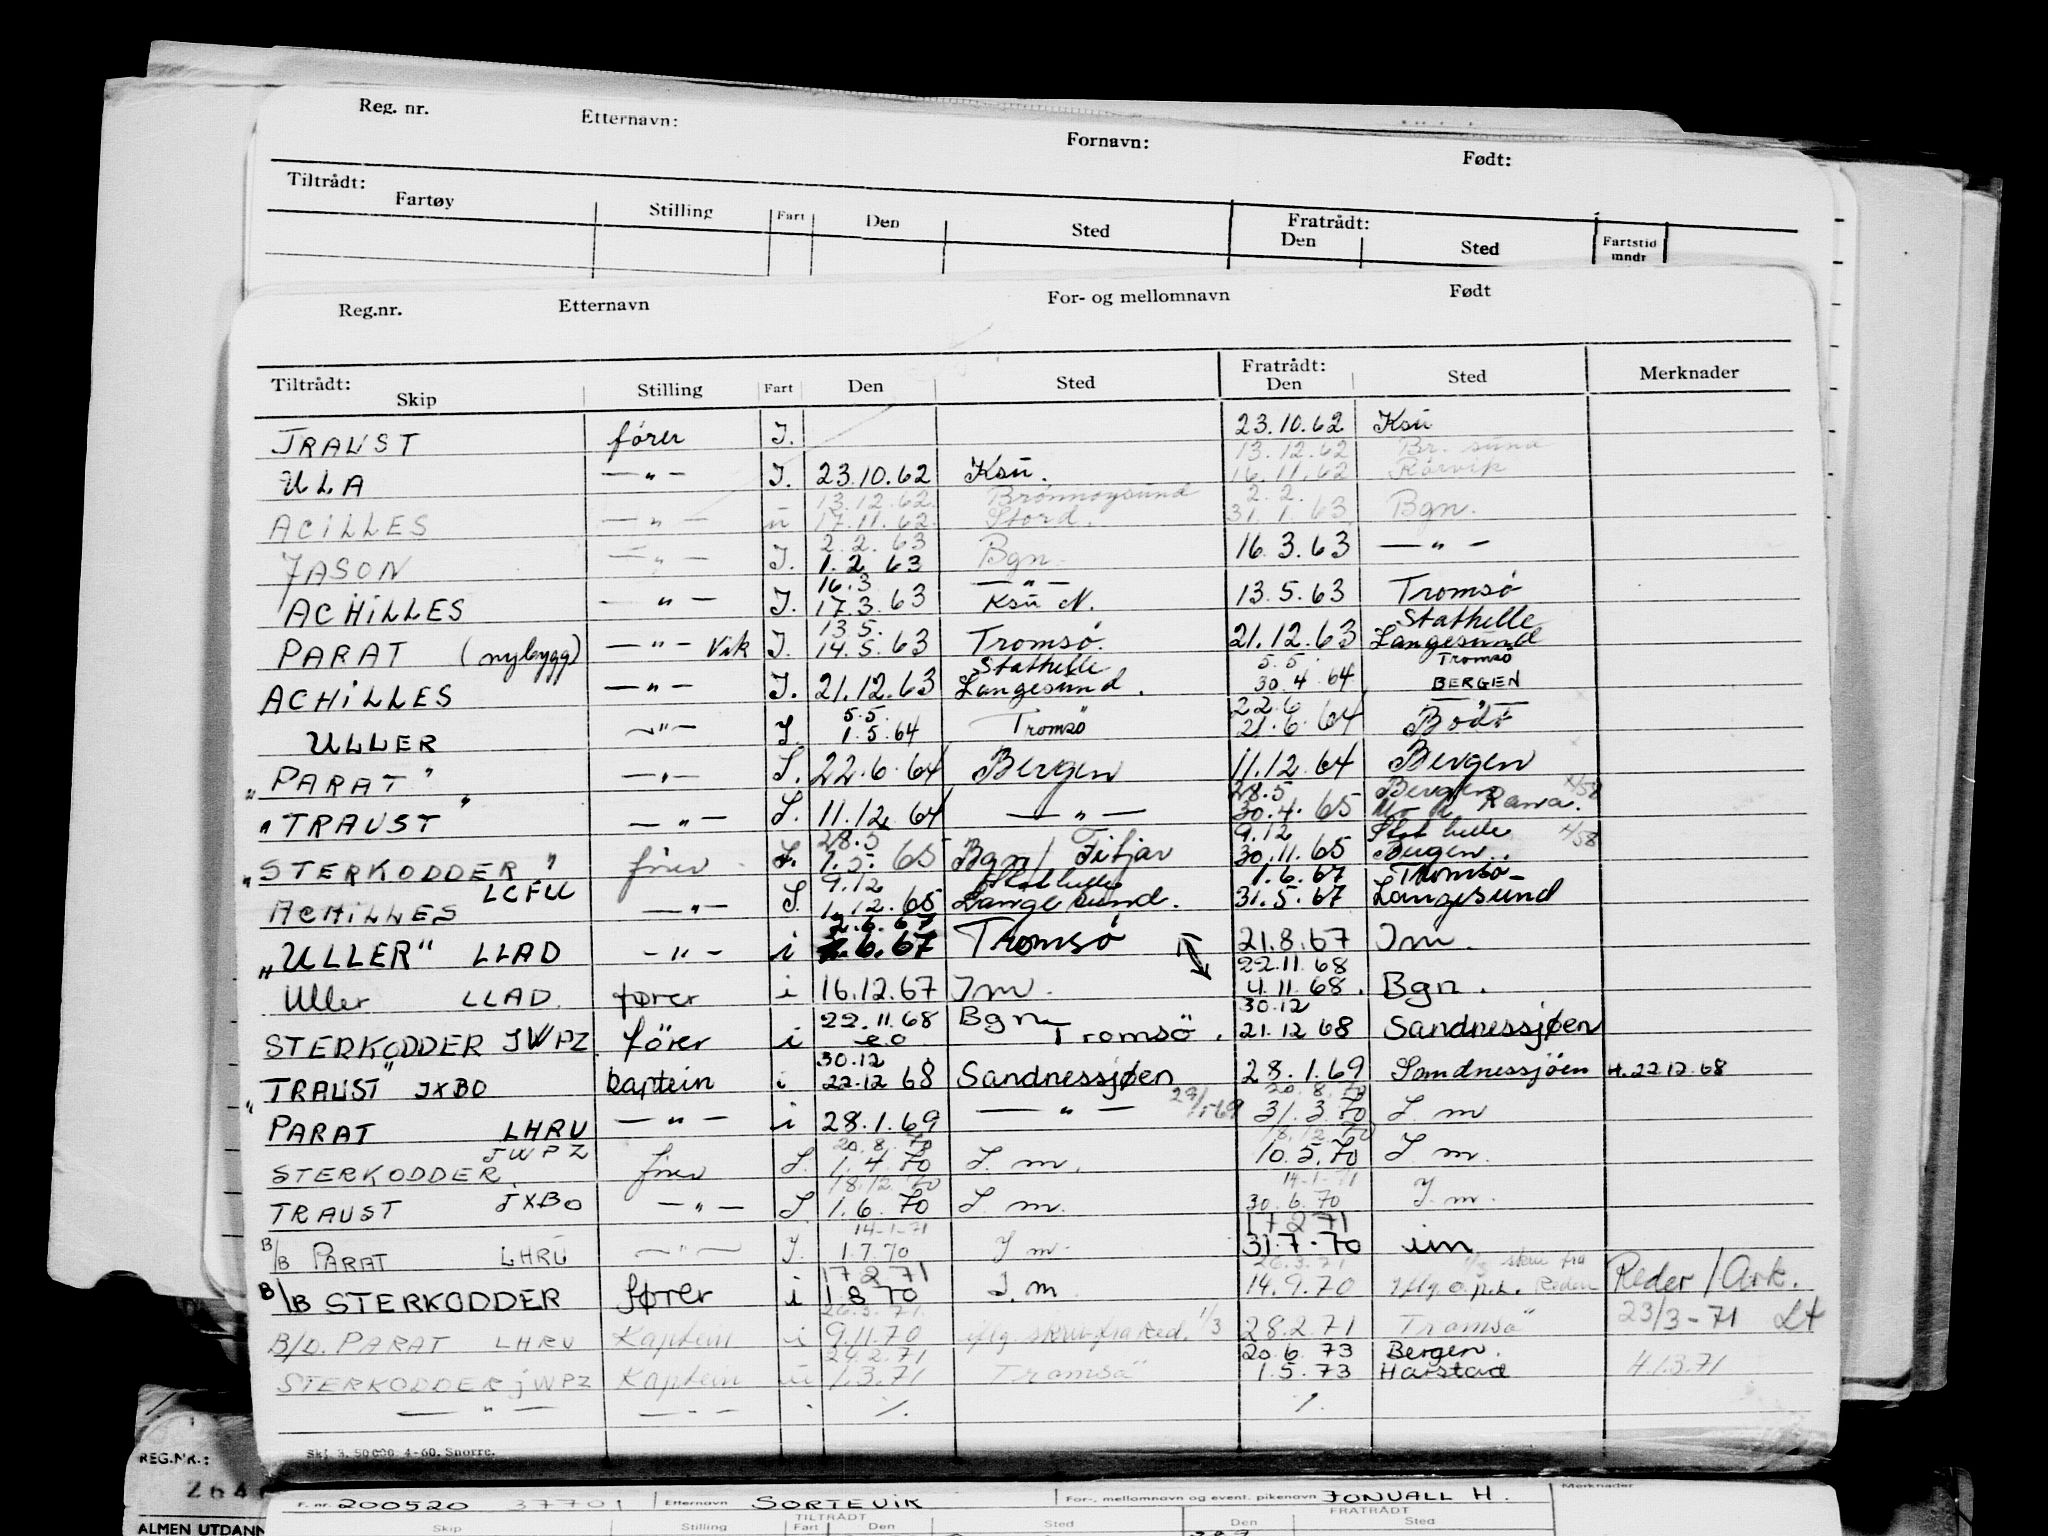 Reg. nr. Etternavn: Fornavn: Født:
Tiltrådt: Fratrådt:
Fartøy Stilling Fart Den Sted Den Sted Fartstid mndr
Reg.nr. Etternavn For- og mellomnavn Født
Tiltrådt: Fratrådt:
Skip Stilling Fart Den Sted Den Sted Merknader
TRAUST fører I. 23.10.62 Ksü
13.12.62 Br. sund
ULA —"— I. 23.10.62 Ksü. 16.11.62 Rörvik
13.12.62 Brönnöysund 2.2.
ACILLES —"— ü 17.11.62 Stord. 31.1.63 Bgn.
2.2.63
JASON —"— I. 1.2.63 Bgn. 16.3.63 —"—
16.3 —"—
ACHILLES —"— I. 17.3.63 Ksü N. 13.5.63 Tromsö
13.5. Stathelle
PARAT (nybygg) —"— Vik I. 14.5.63 Tromsö. 21.12.63 Langesund
Stathelle 5.5. Tromsö
ACHILLES —"— I. 21.12.63 Langesund. 30.4.64 BERGEN
5.5. 22.6
ULLER —"— I. 1.5.64 Tromsö 21.6.64 Bodö
"PARAT" —"— I. 22.6.64 Bergen 11.12.64 Bergen
28.5 Bergen 4/58
"TRAUST" —"— I. 11.12.64 —"— 30.4.65 Mo i Rana.
28.5 9.12 Stathelle 4/58
"STERKODDER" fører I. 1.5.65 Bgn/ Fitjar 30.11.65 Bergen.
9.12 Stathelle 1.6.67 Tromsö
ACHILLES LCFU —"— I. 1.12.65 Langesund. 31.5.67 Langesund
2.6.67
"ULLER" LLAD —"— i 1.6.67 Tromsö 21.8.67 Im.
22.11.68
Uller LLAD. fører i 16.12.67 Im. 4.11.68. Bgn.
22.11.68 Bgn 30.12
STERKODDER JWPZ. förer i Tromsö. 21.12 68 Sandnessjøen
30.12
"TRAUST" JXBO kaptein i 22.12 68 Sandnessjøen 28.1.69 Sandnessjöen H. 22.12.68
29/1-69 20.8.70
PARAT LHRU —"— i 28.1.69 —"— 31.3.70 I. m
20.8.70 18.12.70
STERKODDER JWPZ fører I. 1.4.70 I. m. 10.5.70 I m.
18.12.70 14-1-71
TRAUST JXBO —"— I 1.6.70 I. m. 30.6.70 I m.
14-1-71 17 2 71
B/B PARAT LHRU —"— I. 1.7.70 I m. 31.7.70 im
17 2 71 26.3.71 1/3 skriv fra
B/B STERKODDER fører i 1 8 70 I. m 14.9.70 iflg. o.p.l. Rederi Reder / Ark.
26.3.71.
B/D. PARAT LHRU Kaptein i 9.11.70 iflg. skriv fra Red. 1/3 28.2.71 Tromsö 23/3-71 Lt
24.2.71 20.6.73 Bergen.
STERKODDER JWPZ Kaptein ü 1.3.71 Tromsö 1.5.73 Harstad H.1.3.71
—"— —"— " ·/. ·/.
Skj. 3. 50 000. 4-60. Snorre.
REG.NR.:
264
ALMEN UTDANN
F. nr. 200520 37701 Etternavn SORTEVIK For-, mellomnavn og event. pikenavn JONVALL H. Merknader
TILTRÅDT FRATRÅDT
Skip Stilling Fart Den Sted Den Sted